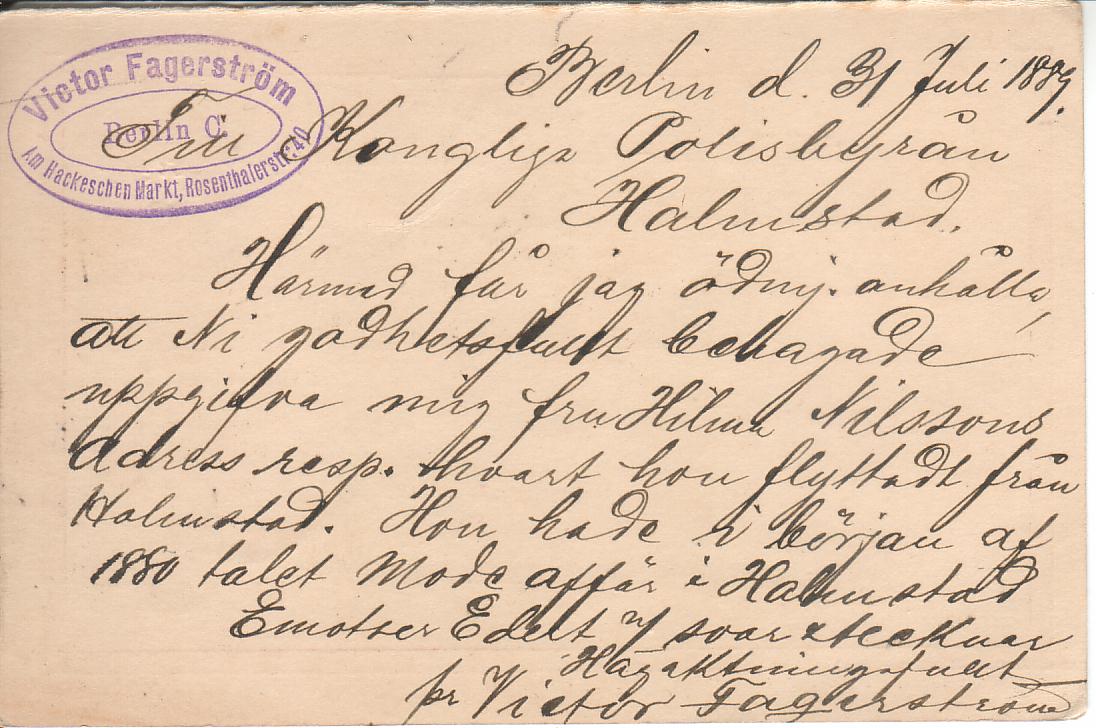 Victor Fagerström
Berlin C.
Am Hackeschen Markt, Rosenthalerstr. 40
Berlin d. 31 Juli 1889.
Till Konglige Polisbyrån
Halmstad.
Härmed får jag ödmj. anhålla,
att Ni godhetsfullt behagade
uppgifva mig fru Hilma Nilssons
adress resp. hvart hon flyttadt från
Halmstad. Hon hade i början af
1880 talet Mode affär i Halmstad
Emotser Edert svar & tecknar
Högaktningsfullt
pr Victor Fagerström